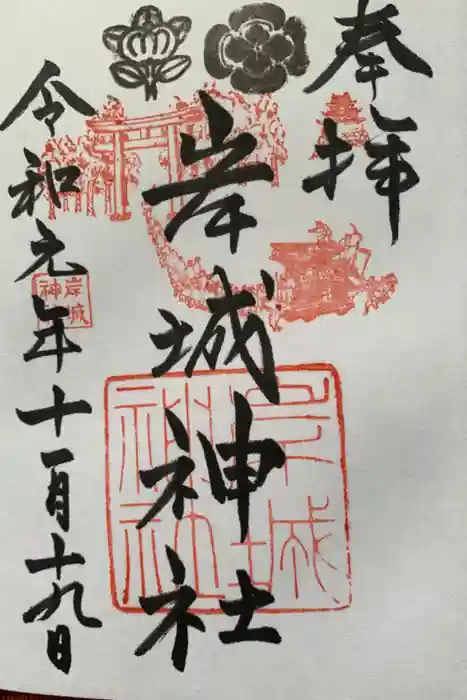 奉拝
岸城神社
令和元年十一月十九日
岸城
神社
岸城
神社